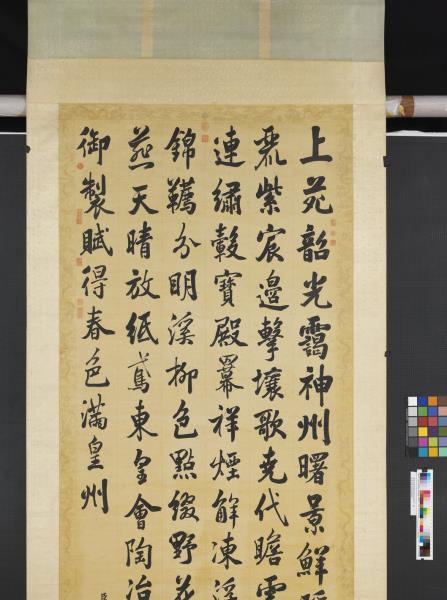 上苑韶光靄神州曙景鮮
麗紫宸邊擊壤歌堯代瞻雲
連繡轂寶殿羃祥煙解凍浮
錦韉分明溪柳色點綴野花
燕天晴放紙鳶東皇會陶冶
御製賦得春色滿皇州
臣